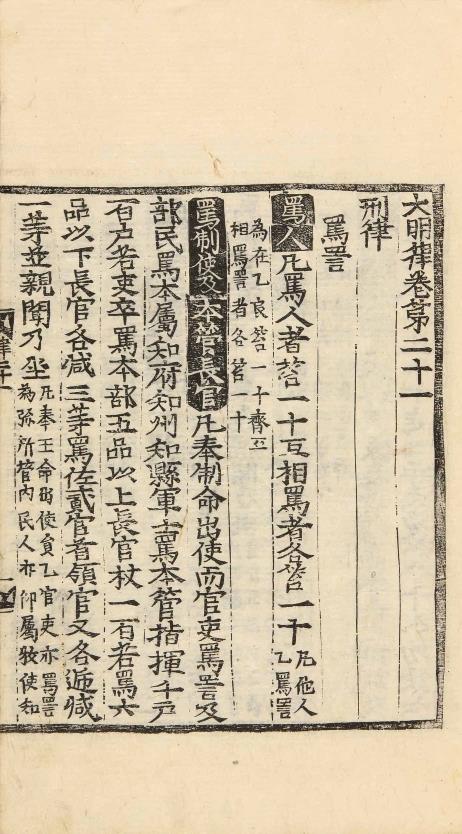 大明律卷第二十一
刑律
罵詈
罵人凡罵人者笞一十互相罵者各笞一十凡他人
乙罵詈
為在乙良笞一十齊互
相罵詈者各笞一十
罵制使及本管長官凡奉制命出使而官吏罵詈及
部民罵本屬知府知州知縣軍士罵本管指揮千戶
百戶若吏卒罵本部五品以上長官杖一百若罵六
品以下長官各減三等罵佐貳官首領官又各遞減
一等並親聞乃坐凡奉王命出使員乙官吏亦罵詈
為旀所管內民人亦仰屬牧使和